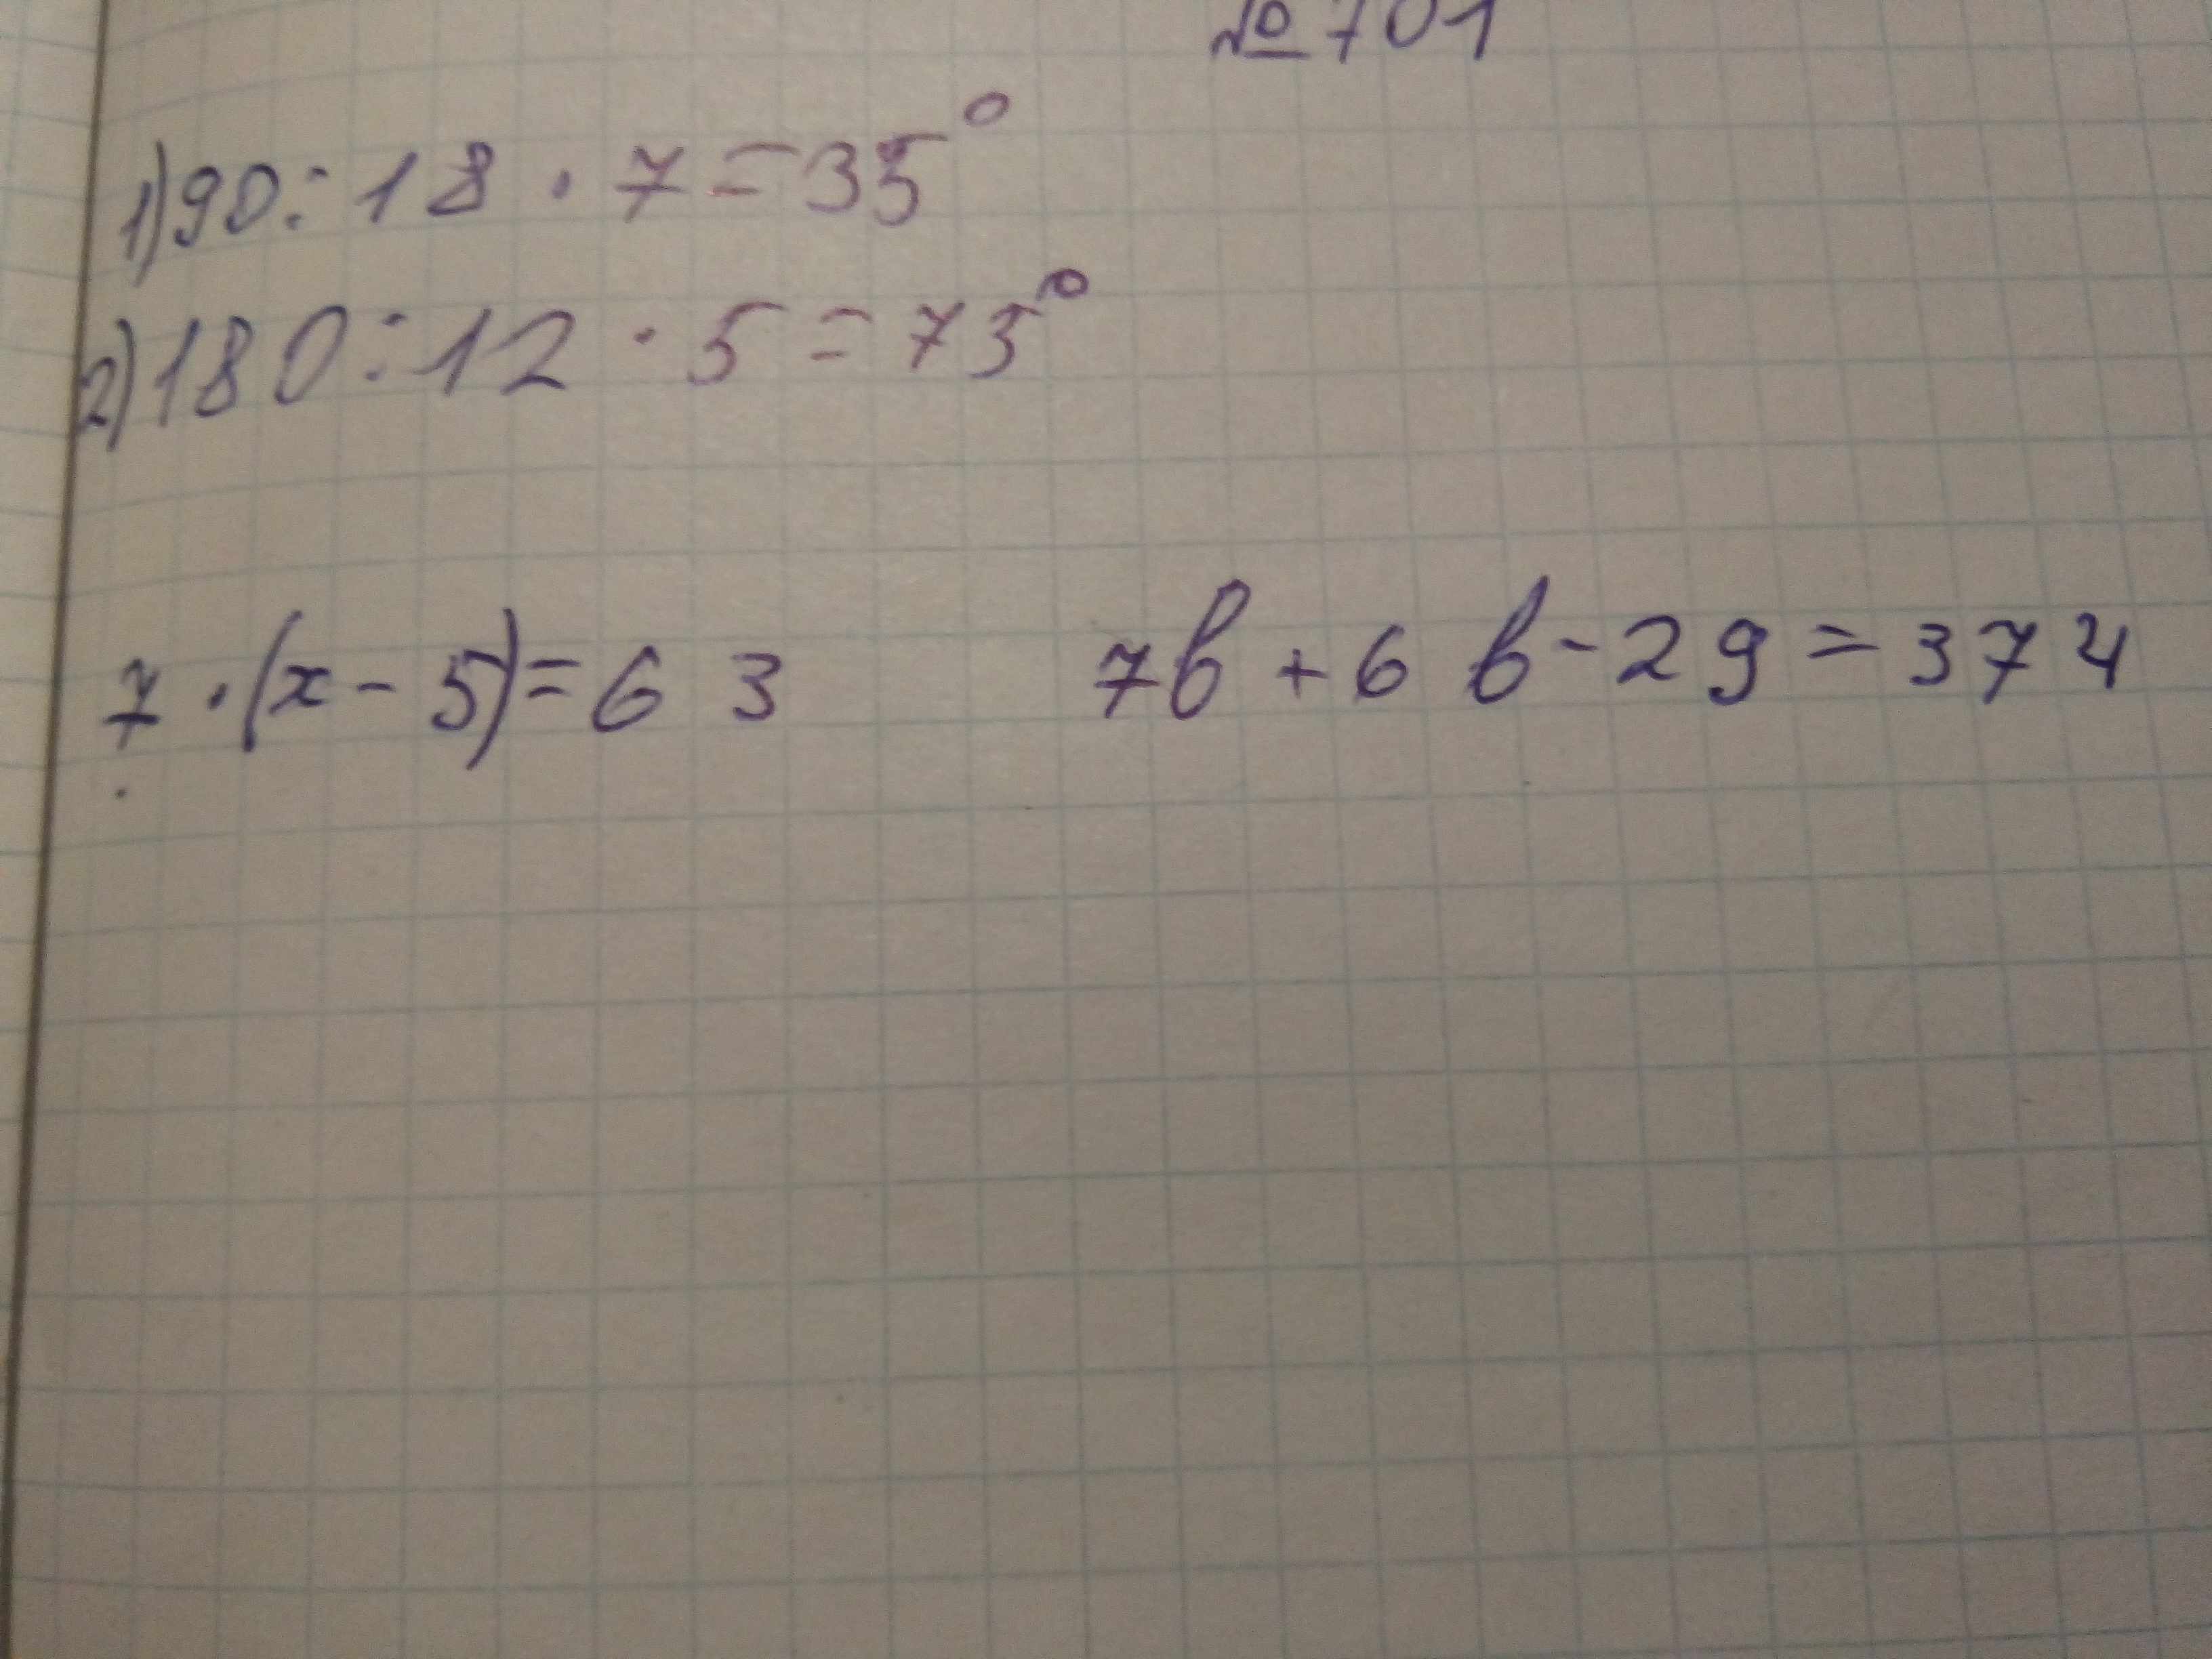 № 701
1) 90 : 18 · 7 = 35°
2) 180 : 12 · 5 = 75°
7 · (x - 5) = 63 7b + 6b - 29 = 374